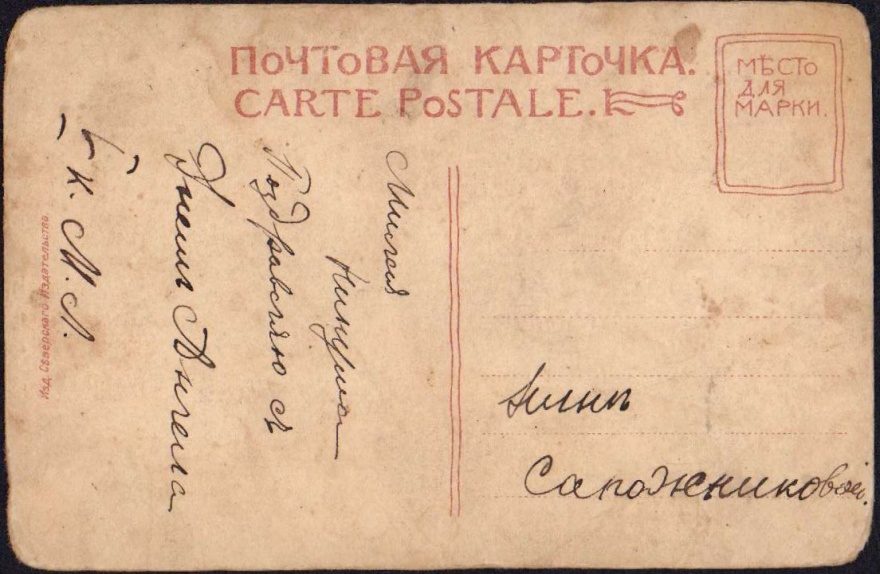 ПОЧТОВАЯ КАРТОЧКА.
CARTE POSTALE.
МѢСТО
ДЛЯ
МАРКИ.
Милая
Нинушка
Поздравляю съ
Днемъ Ангела
К. М. Л.
Нинѣ
Сапожниковой.
Изд. Сѣвернаго Издательства.